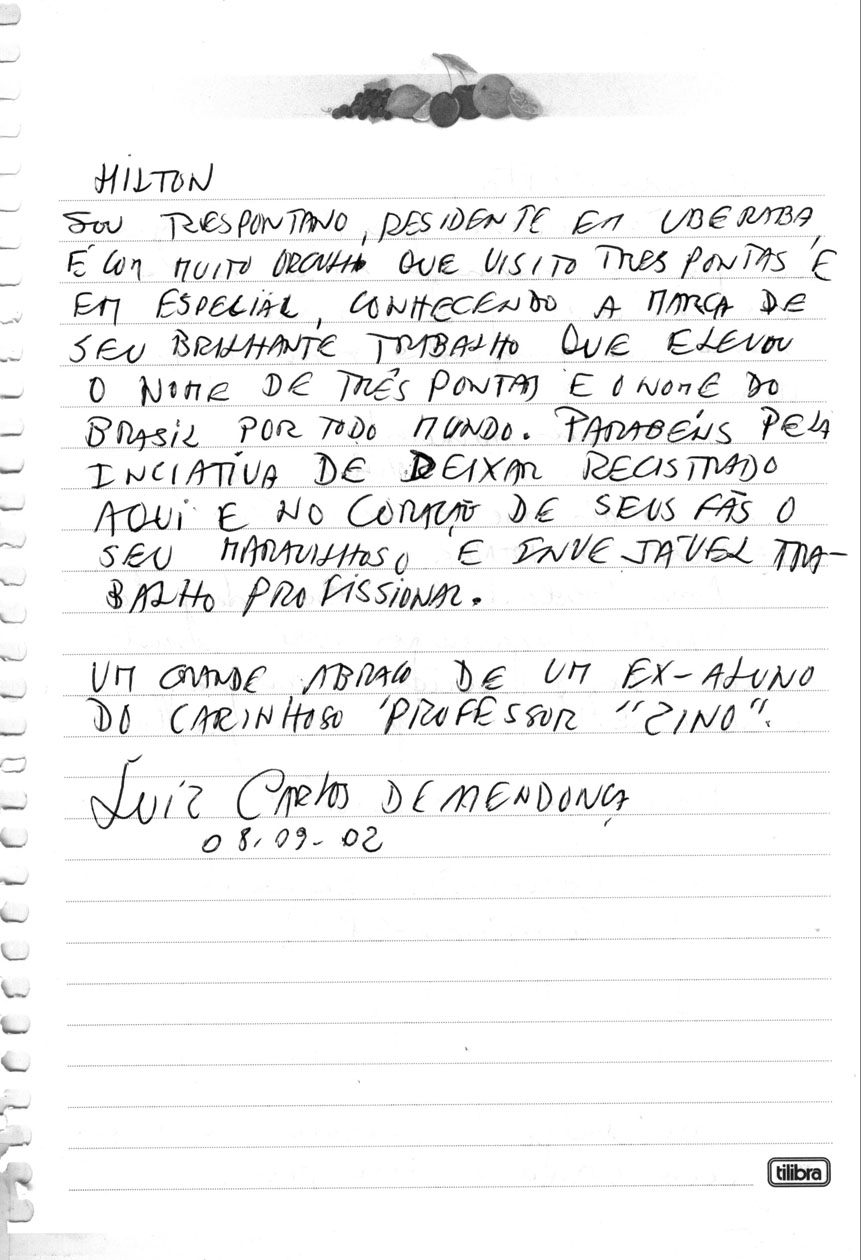 MILTON
SOU TRESPONTANO, RESIDENTE EM UBERABA,
É COM MUITO ORGULHO QUE VISITO TRES PONTAS E
EM ESPECIAL, CONHECENDO A MARCA DE
SEU BRILHANTE TRABALHO QUE ELEVOU
O NOME DE TRÊS PONTAS E O NOME DO
BRASIL POR TODO MUNDO. PARABÉNS PELA
INCIATIVA DE DEIXAR REGISTRADO
AQUI E NO CORAÇÃO DE SEUS FÃS O
SEU MARAVILHOSO E INVEJÁVEL TRA-
BALHO PROFISSIONAL.
UM GRANDE ABRAÇO DE UM EX-ALUNO
DO CARINHOSO PROFESSOR "ZINO".
LUIZ CARLOS DE MENDONÇA
08.09-02
tilibra